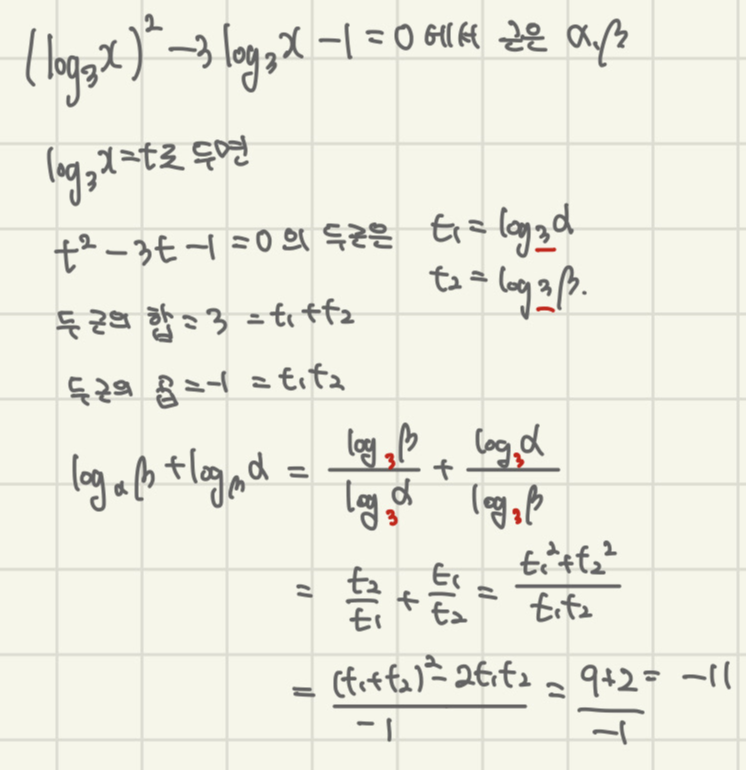 (log₃x)² - 3 log₃x - 1 = 0 에서 근은 α, β
log₃x = t로 두면
t² - 3t - 1 = 0 의 두근은 t₁ = log₃α
t₂ = log₃β.
두 근의 합 = 3 = t₁ + t₂
두 근의 곱 = -1 = t₁t₂
log_α β + log_β α = (log₃β)/(log₃α) + (log₃α)/(log₃β)
= t₂/t₁ + t₁/t₂ = (t₁² + t₂²)/(t₁t₂)
= ((t₁+t₂)² - 2t₁t₂)/(-1) = (9+2)/(-1) = -11